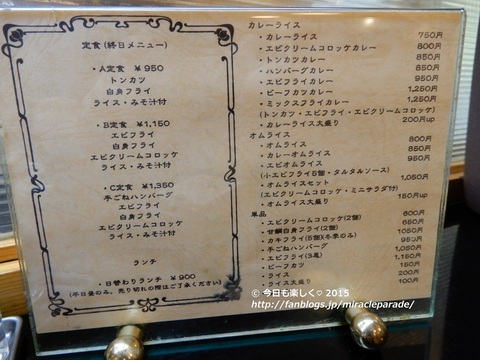 定食(終日メニュー)
・A定食 ￥950
トンカツ
白身フライ
ライス・みそ汁付
・B定食 ￥1,150
エビフライ
白身フライ
エビクリームコロッケ
ライス・みそ汁付
・C定食 ￥1,350
手ごねハンバーグ
エビフライ
白身フライ
エビクリームコロッケ
ライス・みそ汁付
ランチ
・日替わりランチ ￥900
(平日昼のみ、売り切れの際はご了承ください)
カレーライス
・カレーライス 750円
・エビクリームコロッケカレー 800円
・トンカツカレー 850円
・ハンバーグカレー 850円
・エビフライカレー 950円
・ビーフカツカレー 1,250円
・ミックスフライカレー 1,250円
(トンカツ・エビフライ・エビクリームコロッケ)
・カレーライス大盛り 200円up
オムライス
・オムライス 800円
・カレーオムライス 850円
・エビオムライス 950円
(小エビフライ5個・タルタルソース)
・オムライスセット 1,050円
(エビクリームコロッケ・ミニサラダ付)
・オムライス大盛り 150円up
単品
・エビクリームコロッケ(2個) 600円
・甘鯛白身フライ(2個) 650円
・カキフライ(5個)(冬季のみ) 1050円
・手ごねハンバーグ 950円
・エビフライ(3尾) 1,050円
・ビーフカツ 1,150円
・ライス 200円
・ライス大盛り 100円
© 今日も楽しく♡ 2015
http://fanblogs.jp/miracleparade/